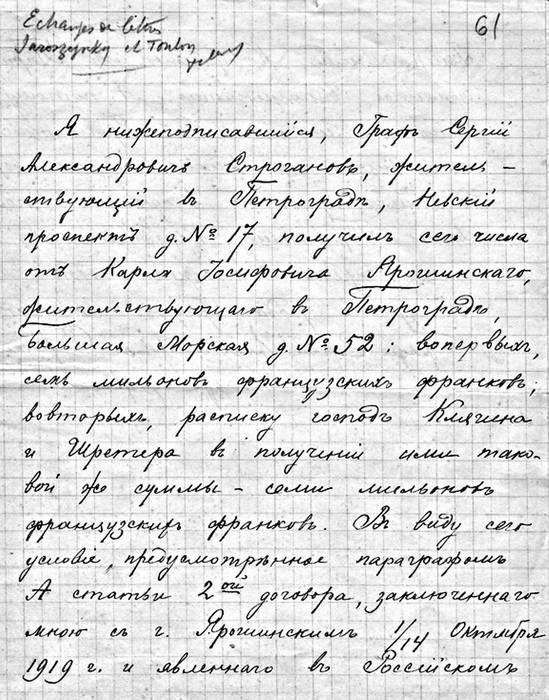 Echanges de lettres
Jaroszynsky et Toulon
61
Я нижеподписавшійся, Графъ Сергій
Александровичъ Строгановъ, житель-
ствующій въ Петроградѣ, Невскій
проспектъ д. № 17, получилъ сего числа
отъ Карла Іосифовича Ярошинскаго,
жительствующаго въ Петроградѣ,
Большая Морская д. № 52: вопервыхъ,
семь мильоновъ французскихъ франковъ;
вовторыхъ, расписку господъ Клягина
и Шретера въ полученіи ими тако-
вой же суммы – семи мильоновъ
французскихъ франковъ. Въ виду сего
условіе, предусмотрѣнное параграфомъ
А статьи 2ой договора, заключеннаго
мною съ г. Ярошинскимъ 1/14 Октября
1919 г. и явленнаго въ Россійскомъ